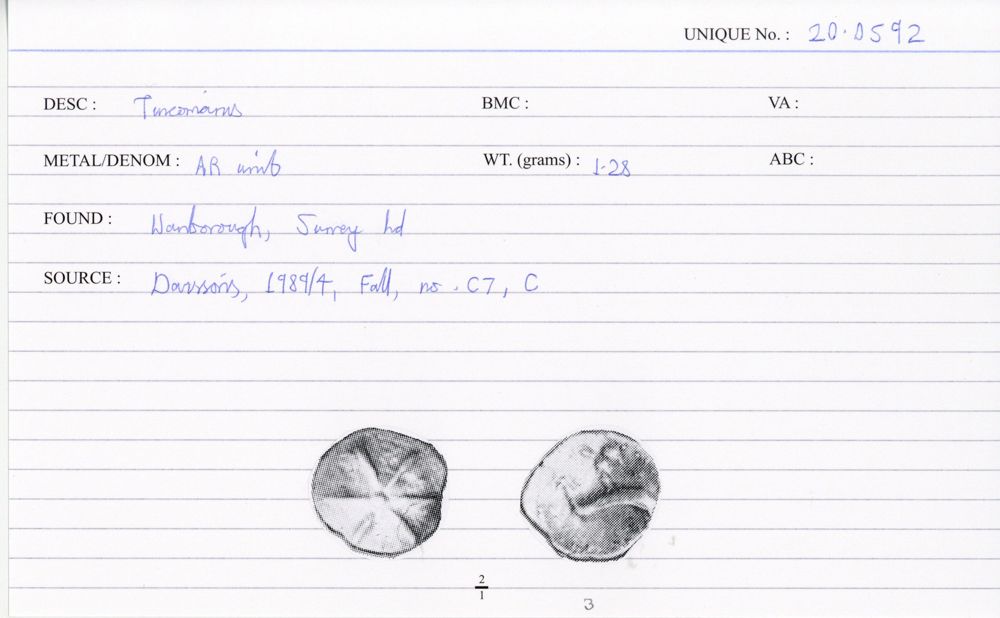 UNIQUE No. : 20·0592
DESC : Tincomarus BMC : VA :
METAL/DENOM : AR unit WT. (grams) : 1·28 ABC :
FOUND : Wanborough, Surrey hd
SOURCE : Davissons, 1989/4, Fall, no. C7, C
2
1
3